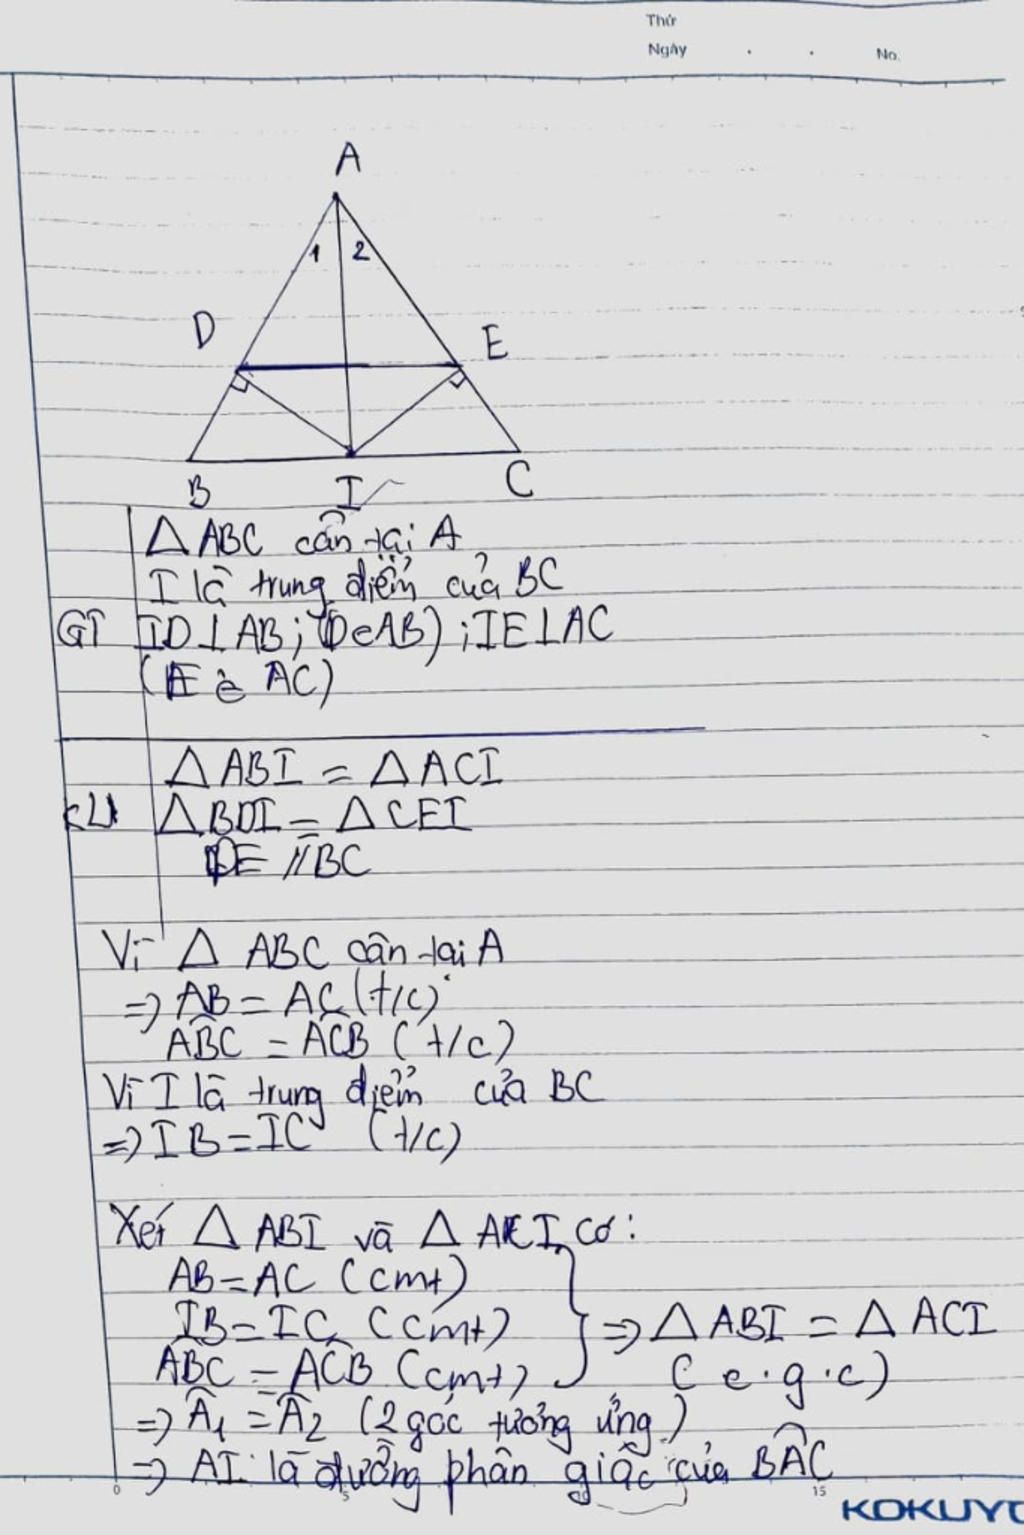 Thứ
Ngày . . No.
A
1 2
D E
B I C
△ ABC cân tại A
I là trung điểm của BC
GT ID ⊥ AB; (D∈AB); IE ⊥ AC
(E ∈ AC)
△ ABI = △ ACI
KL △ BDI = △ CEI
DE // BC
Vì △ ABC cân tại A
=> AB = AC (t/c)
ABC = ACB (t/c)
Vì I là trung điểm của BC
=> IB = IC (t/c)
Xét △ ABI và △ ACI có:
AB = AC (cmt)
IB = IC (cmt) } => △ ABI = △ ACI
ABC = ACB (cmt) (c.g.c)
=> Â1 = Â2 (2 góc tương ứng)
=> AI là đường phân giác của BAC
0 5 15
KOKUYO